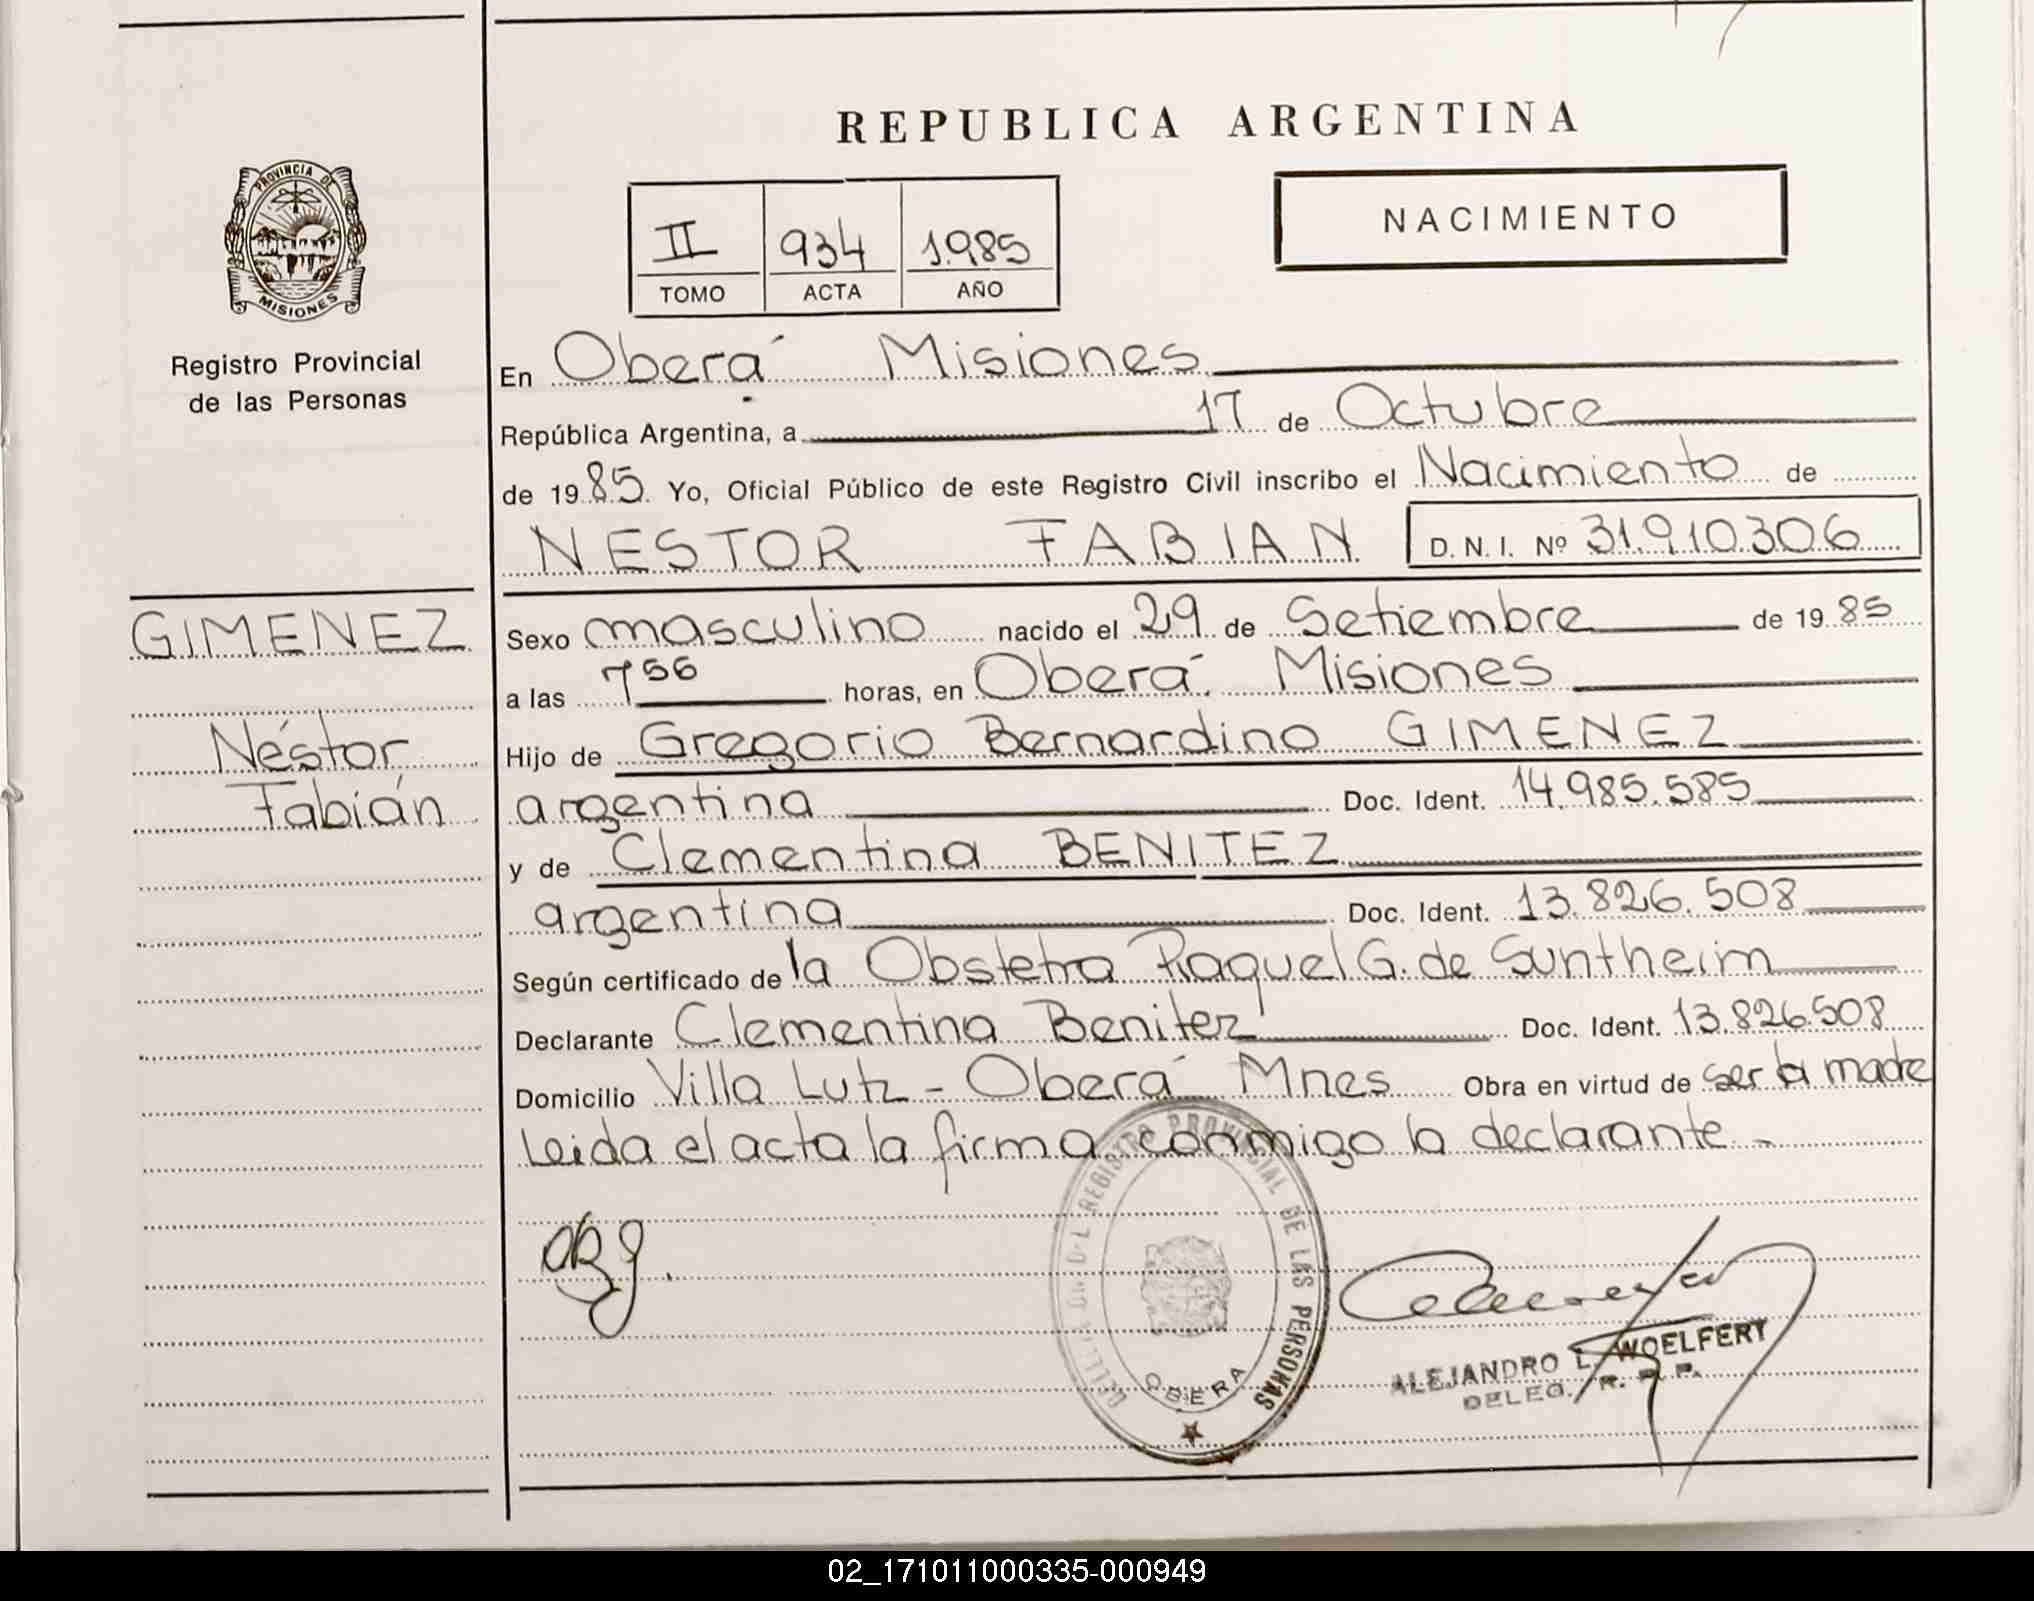 REPUBLICA ARGENTINA
PROVINCIA DE
MISIONES
Registro Provincial
de las Personas
II 934 1.985
TOMO ACTA AÑO
NACIMIENTO
En Oberá Misiones
República Argentina, a 17 de Octubre
de 1985. Yo, Oficial Público de este Registro Civil inscribo el Nacimiento de
NESTOR FABIAN D. N. I. Nº 31.910.306
GIMENEZ
Néstor
Fabián
Sexo masculino nacido el 29 de Setiembre de 1985
a las 7 56 horas, en Oberá. Misiones
Hijo de Gregorio Bernardino GIMENEZ
argentina Doc. Ident. 14.985.585
y de Clementina BENITEZ
argentina Doc. Ident. 13.826.508
Según certificado de la Obstetra Raquel G. de Suntheim
Declarante Clementina Benitez Doc. Ident. 13.826.508
Domicilio Villa Lutz - Oberá Mnes Obra en virtud de ser la madre
Leida el acta la firma conmigo la declarante -
REGISTRO PROVINCIAL DE LAS PERSONAS
OBERA
ALEJANDRO L. WOELFERT
DELEG. R. P. P.
02_171011000335-000949